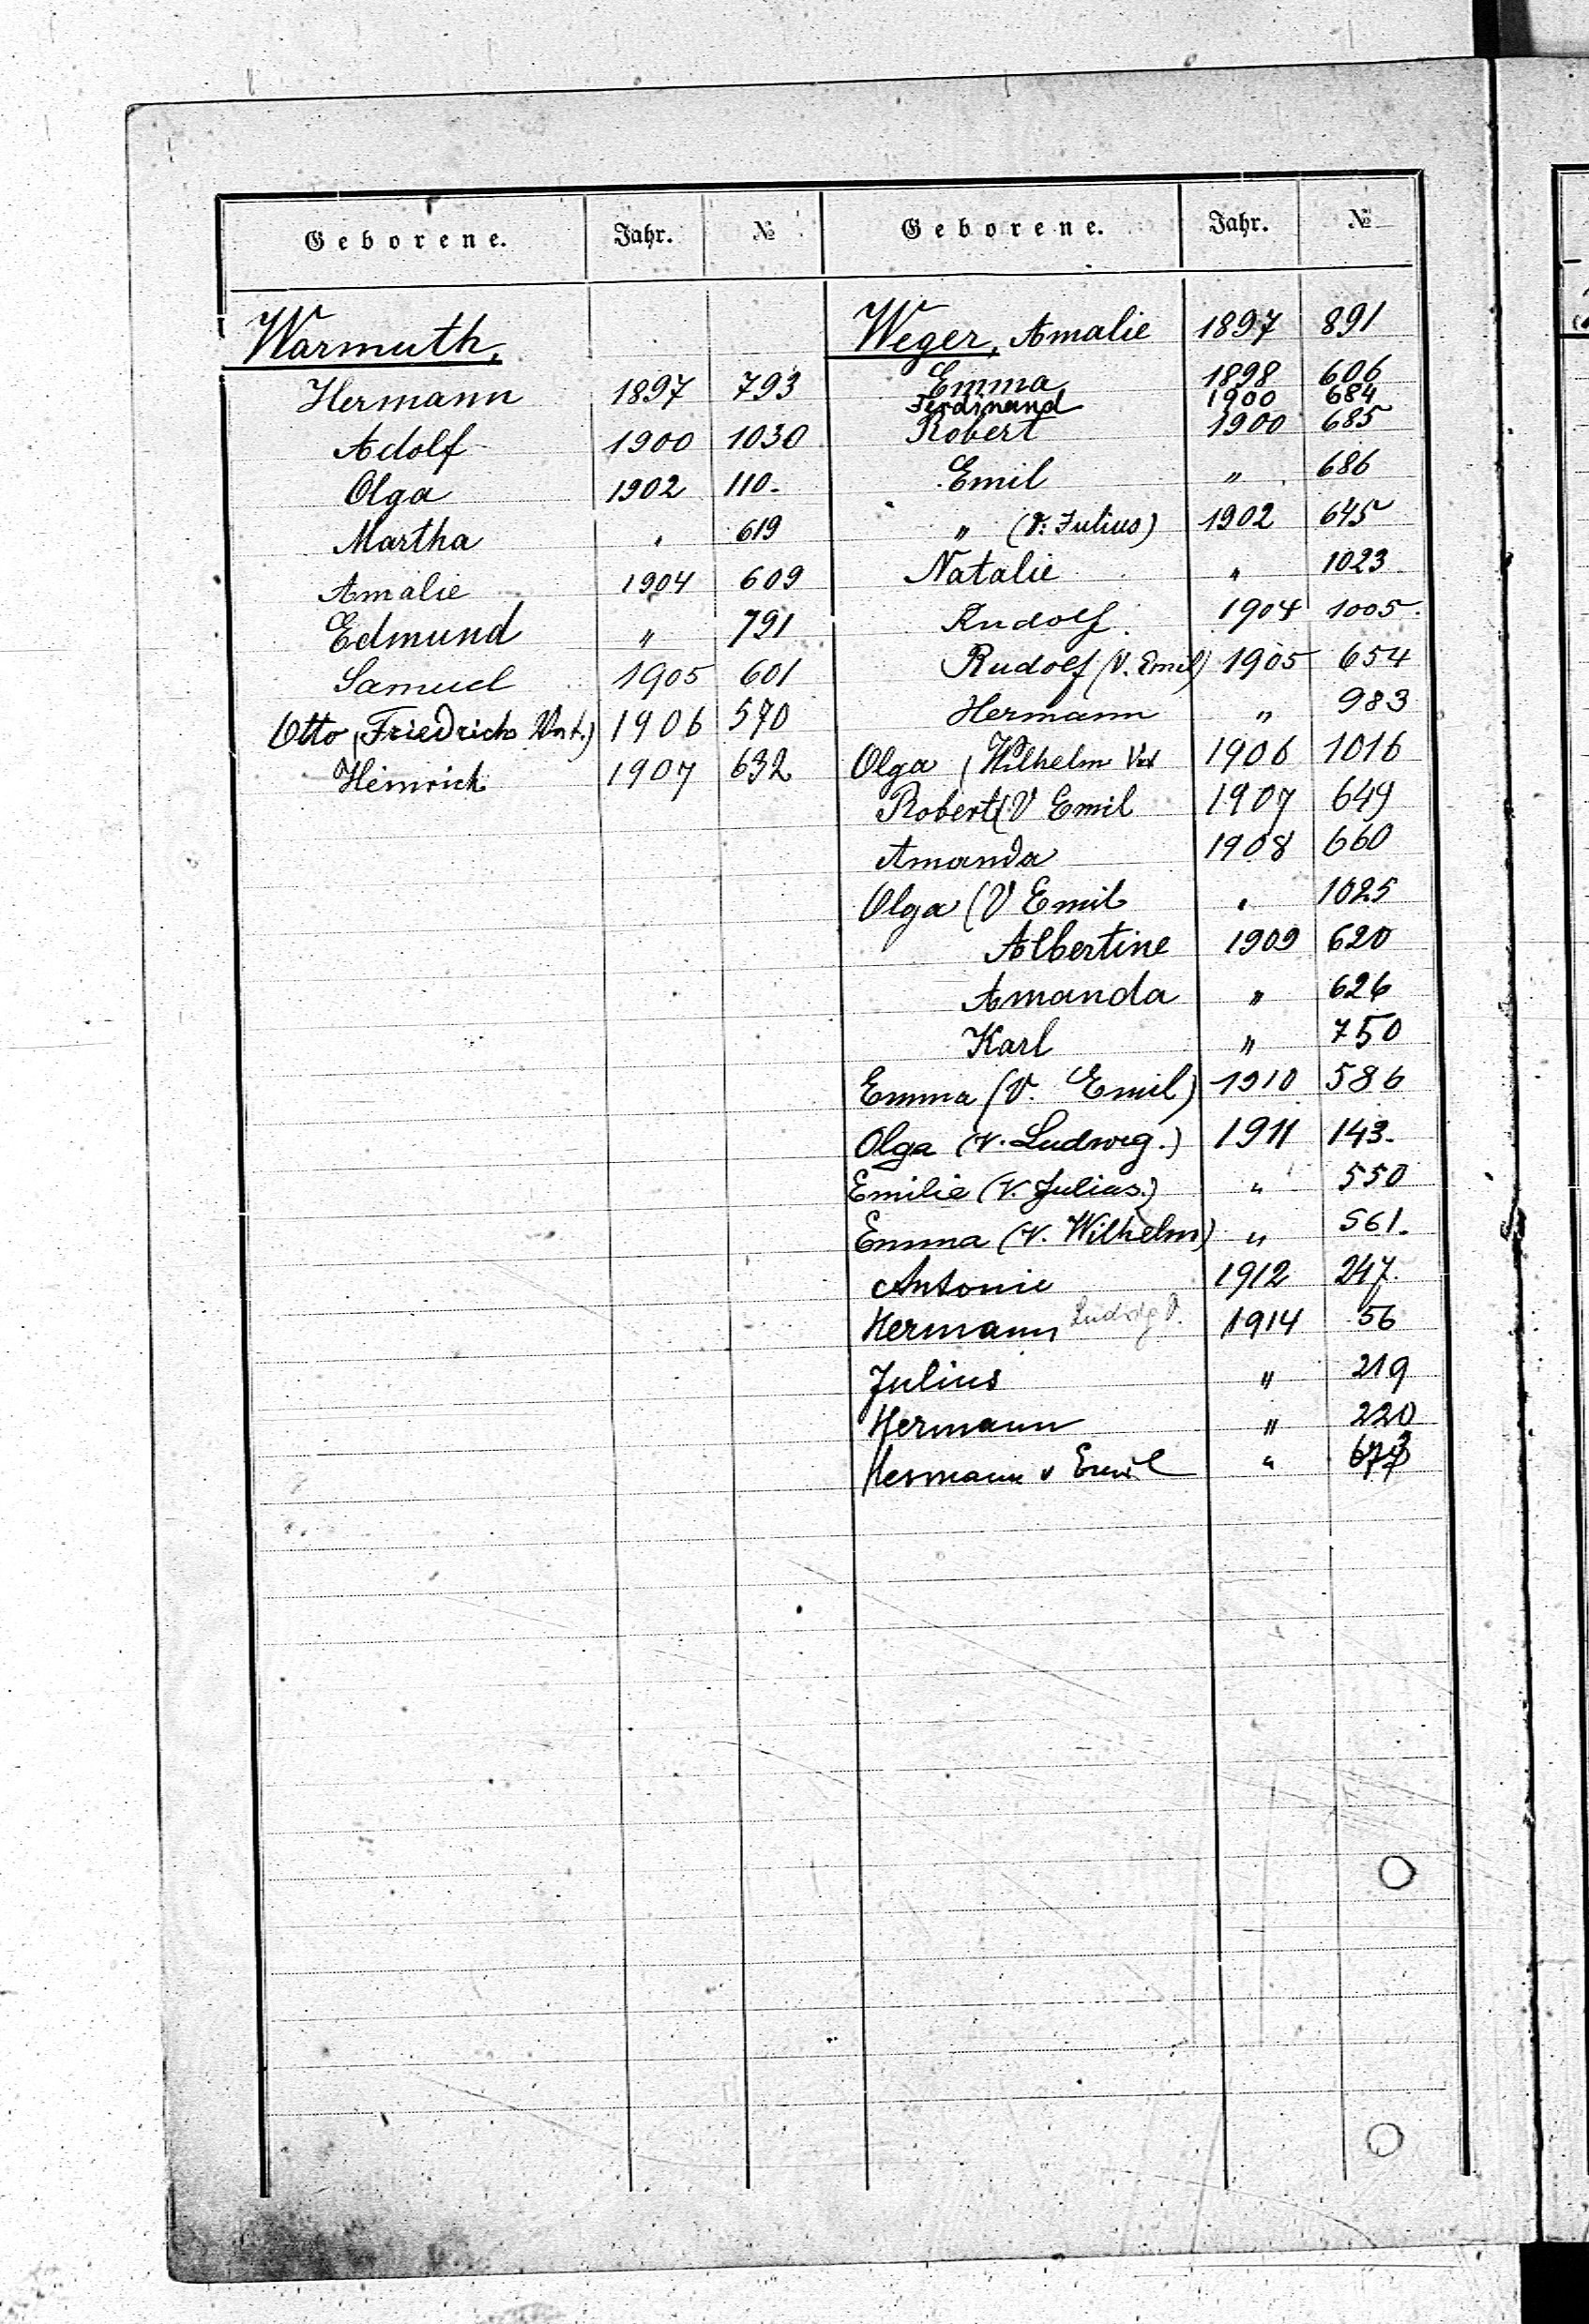 Geborene. Jahr. №
Warmuth,
Hermann 1897 793
Adolf 1900 1030
Olga 1902 110.
Martha " 619
Amalie 1904 609
Edmund " 791
Samuel 1905 601
Otto (Friedrichs Vat.) 1906 570
Heinrich 1907 632
Geborene. Jahr. №
Weger, Amalie 1897 891
Emma 1898 606
Ferdinand 1900 684
Robert 1900 685
Emil " 686
" (V. Julius) 1902 645
Natalie " 1023
Rudolf. 1904 1005.
Rudolf (V. Emil) 1905 654
Hermann " 983
Olga (Wilhelm Vat 1906 1016
Robert (V Emil 1907 649
Amanda 1908 660
Olga (V Emil " 1025
Albertine 1909 620
Amanda " 626
Karl " 750
Emma (V. Emil) 1910 586
Olga (V. Ludwig.) 1911 143.
Emilie (V. Julius.) " 550
Emma (V. Wilhelm) " 561.
Antonie 1912 247.
Hermann Ludwig V. 1914 56
Julius " 219
Hermann " 220
Hermann v Emil "